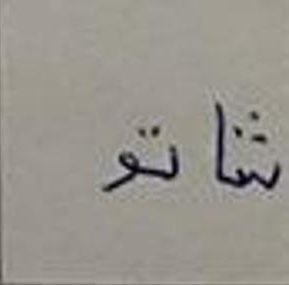 شاتو